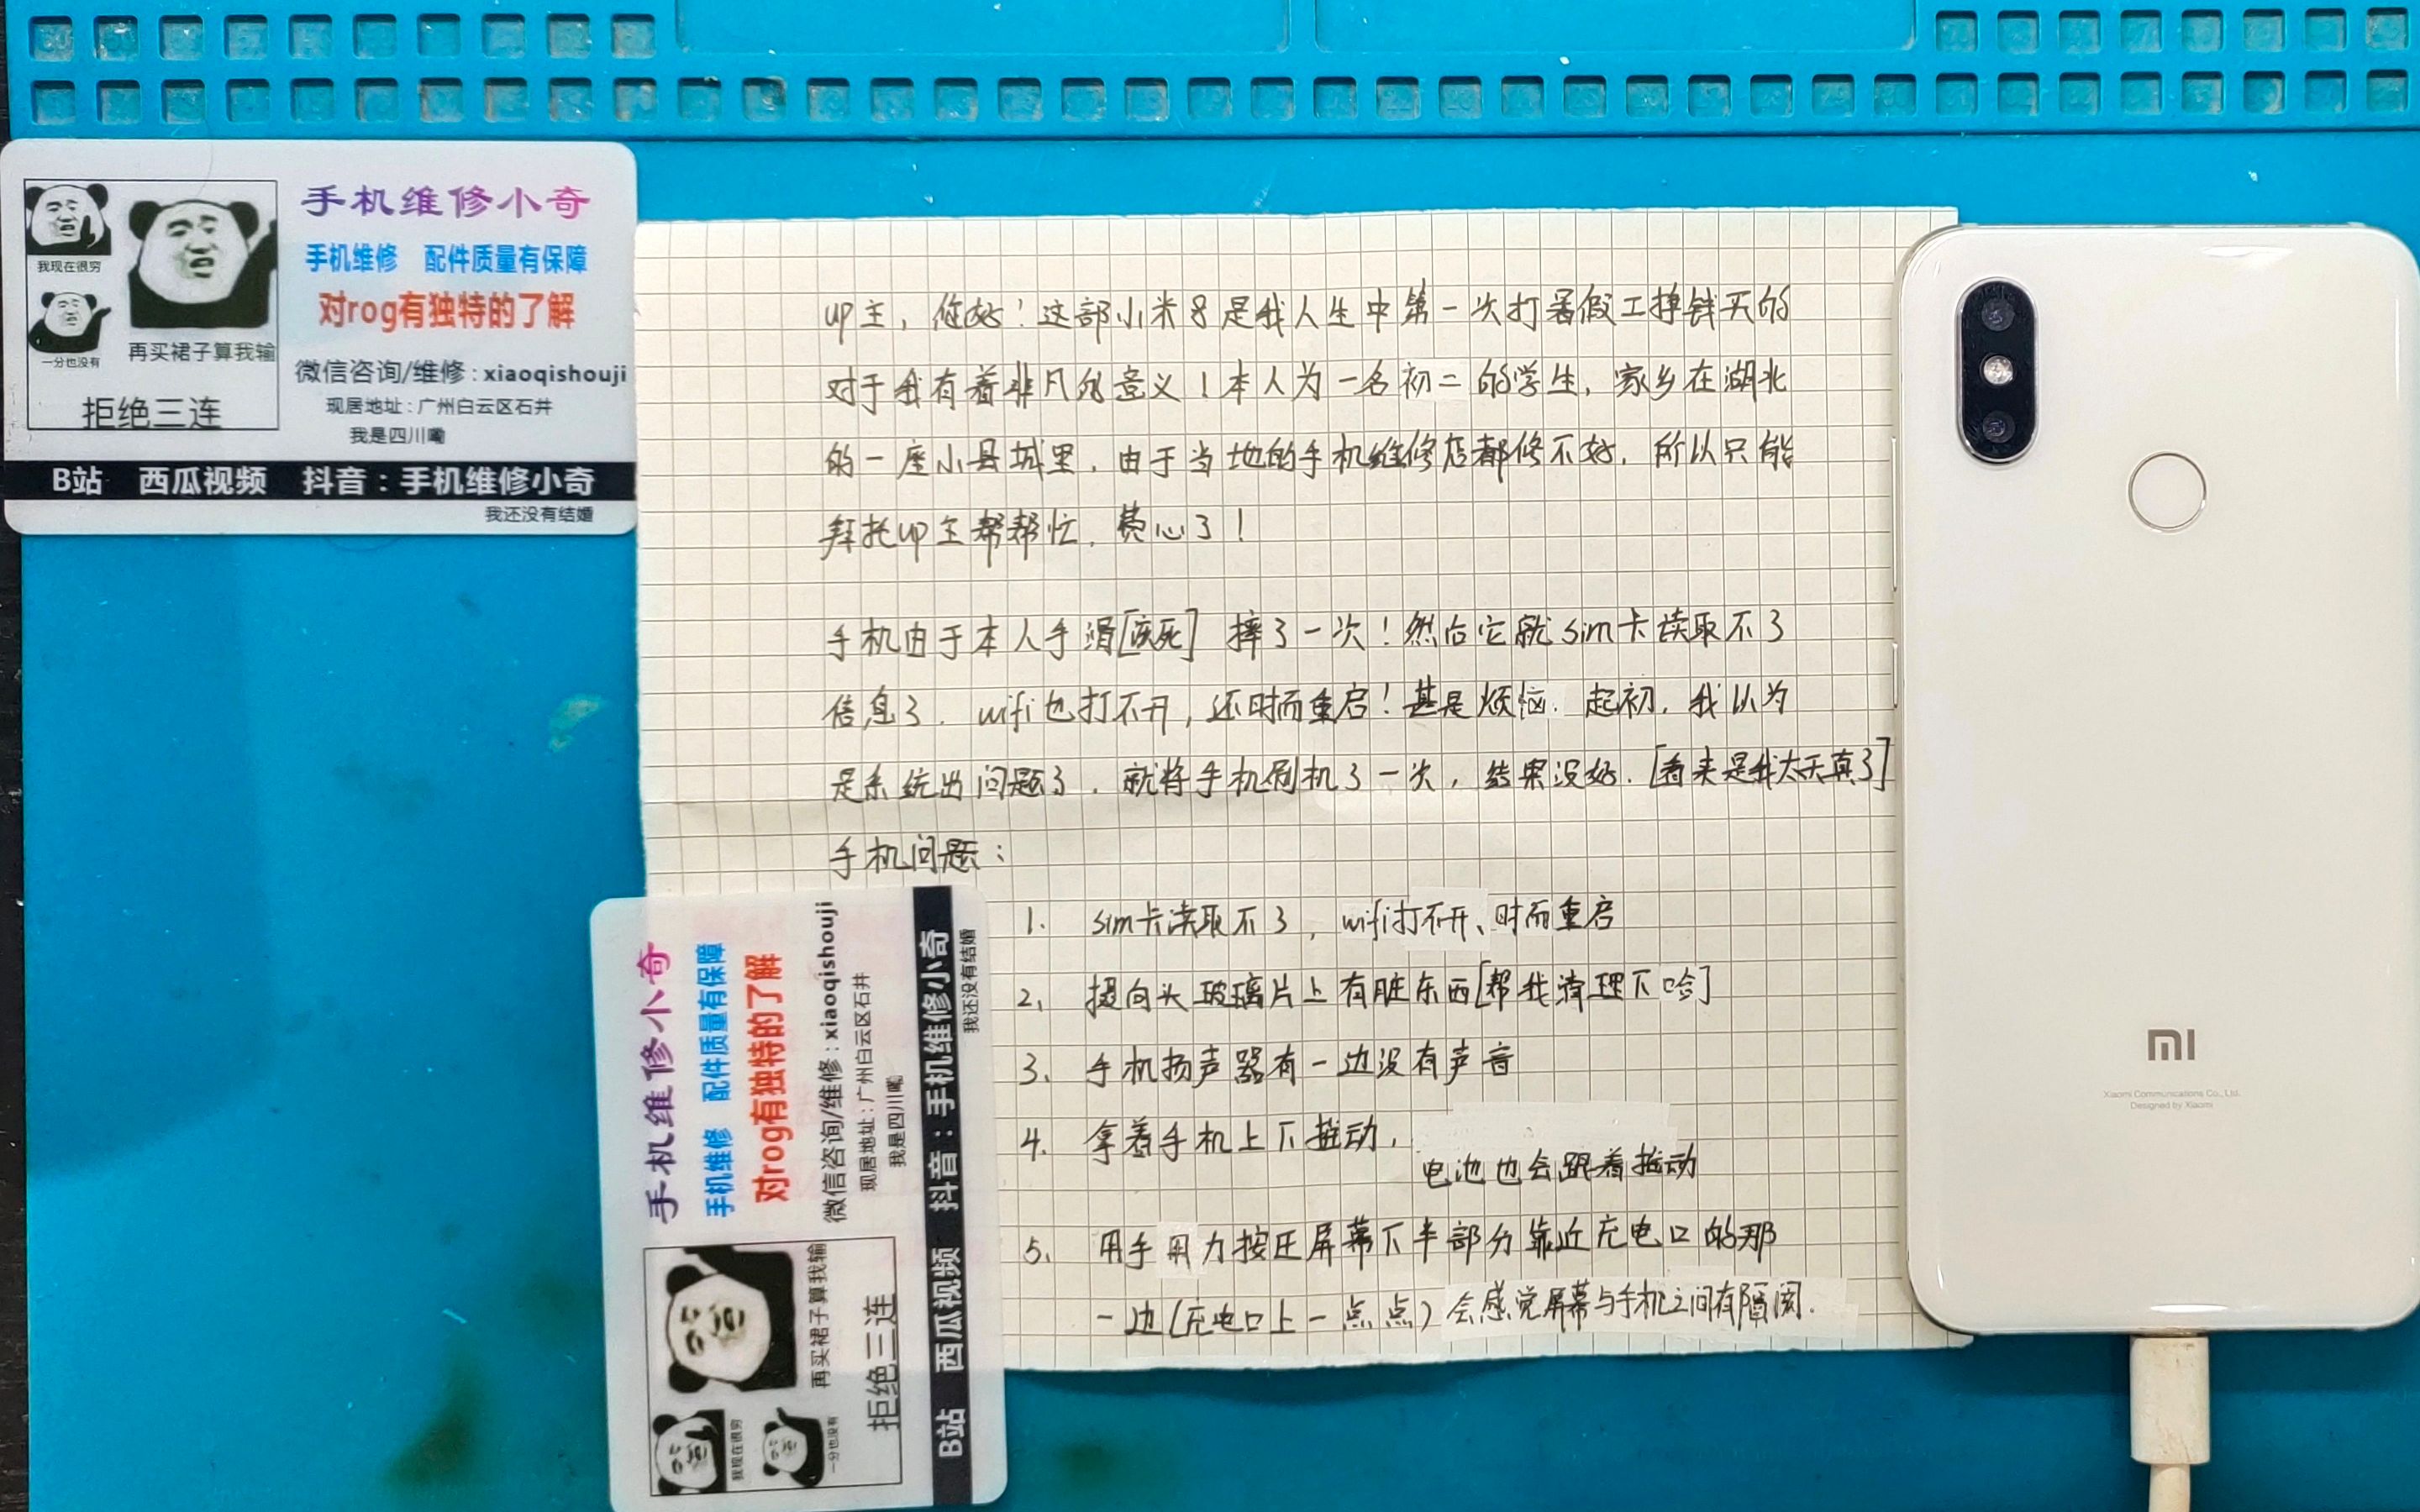 手机维修小奇
手机维修 配件质量有保障
对rog有独特的了解
微信咨询/维修：xiaoqishouji
现居地址：广州白云区石井
我是四川嘞
我现在很穷
一分也没有
再买裙子算我输
拒绝三连
B站 西瓜视频 抖音：手机维修小奇
我还没有结婚
up主，您好！这部小米8是我人生中第一次打暑假工挣钱买的
对于我有着非凡的意义！本人为一名初二的学生，家乡在湖北
的一座小县城里，由于当地的手机维修店都修不好，所以只能
拜托up主帮帮忙，费心了！
手机由于本人手滑[该死] 摔了一次！然后它就sim卡读取不了
信息了．wifi也打不开，还时而重启！甚是烦恼．起初，我认为
是系统出问题了，就将手机刷机了一次，结果没好．[看来是我太天真了]
手机问题：
1. sim卡读取不了，wifi打不开、时而重启
2. 摄向头玻璃片上有脏东西[帮我清理下哈]
3. 手机扬声器有一边没有声音
4. 拿着手机上下摇动，
电池也会跟着摇动
5. 用手用力按压屏幕下半部分靠近充电口的那
一边(充电口上一点点)会感觉屏幕与手机之间有隔阂．
手机维修小奇
手机维修 配件质量有保障
对rog有独特的了解
微信咨询/维修：xiaoqishouji
现居地址：广州白云区石井
我是四川嘞
我现在很穷
一分也没有
再买裙子算我输
拒绝三连
B站 西瓜视频 抖音：手机维修小奇
我还没有结婚
MI
Xiaomi Communications Co., Ltd.
Designed by Xiaomi